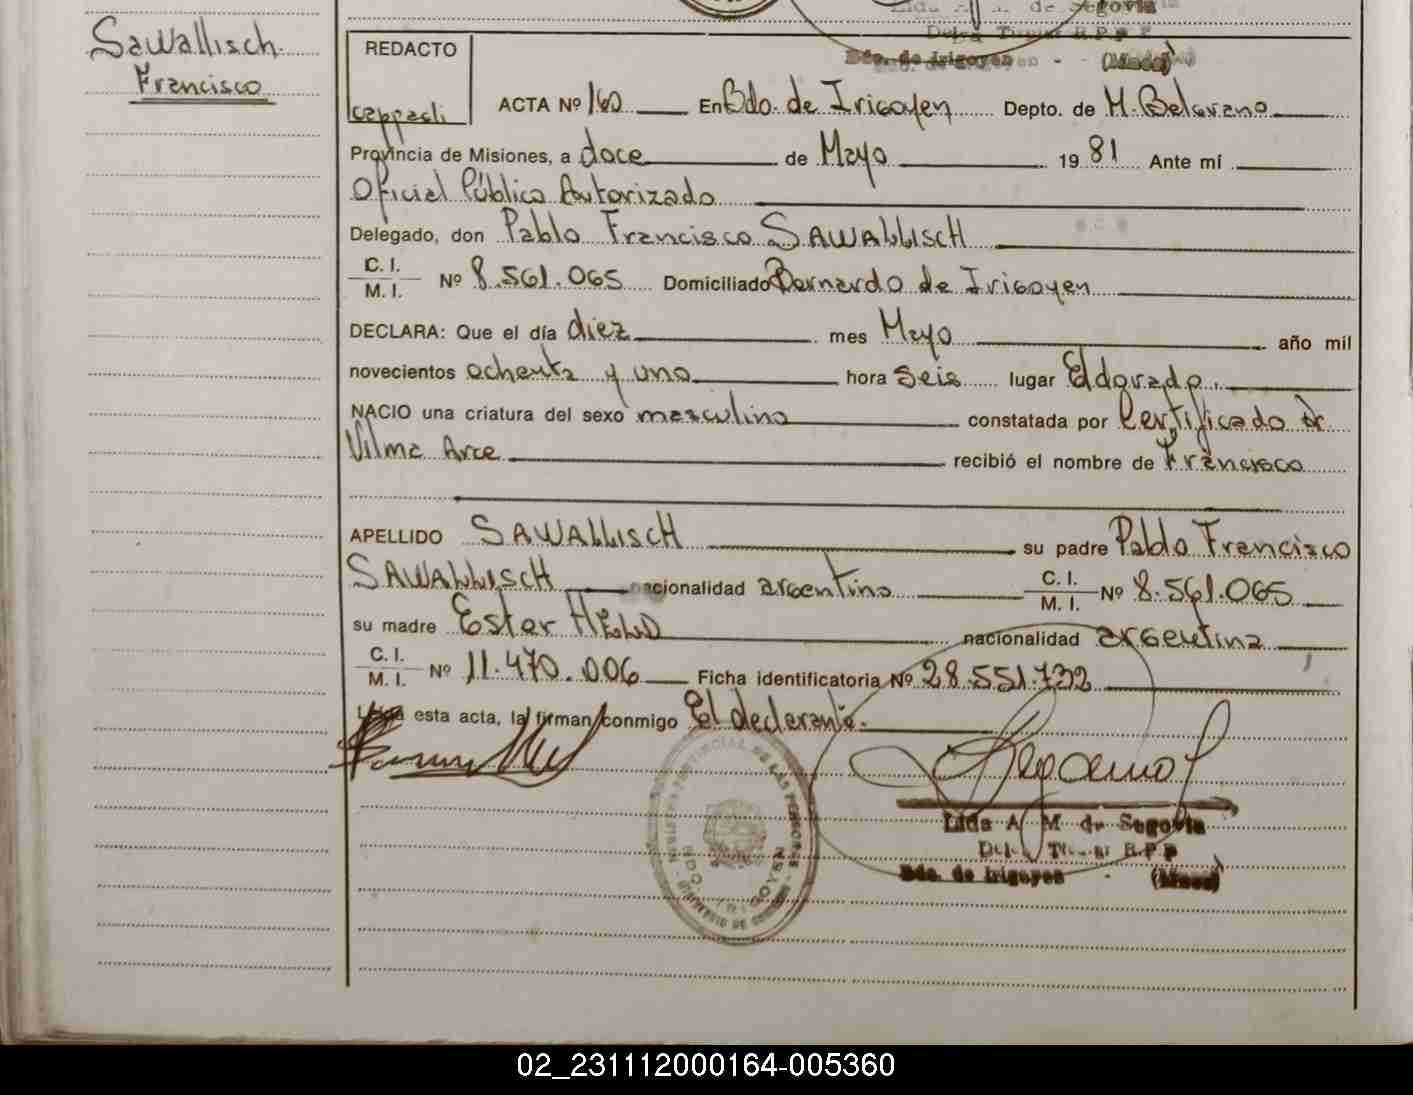 Sawallisch
Francisco
Lida A. M. de Segovia
Deleg. Titular R.P.P.
Bdo. de Irigoyen - (Mnes)
REDACTO
ACTA Nº 160 En Bdo. de Irigoyen Depto. de M. Belgrano
Provincia de Misiones, a doce de Mayo 19 81 Ante mí
Oficial Público Autorizado
Delegado, don Pablo Francisco SAWALLISCH
C. I.
M. I. Nº 8.561.065 Domiciliado Bernardo de Irigoyen
DECLARA: Que el día diez mes Mayo año mil
novecientos ochenta y uno hora seis lugar Eldorado.
NACIO una criatura del sexo masculino constatada por Certificado Dr.
Vilma Arce recibió el nombre de Francisco
APELLIDO SAWALLISCH su padre Pablo Francisco
SAWALLISCH nacionalidad argentino C. I.
M. I. Nº 8.561.065
su madre Ester HELD nacionalidad argentina
C. I.
M. I. Nº 11.470.006 Ficha identificatoria Nº 28.551.732
Leída esta acta, la firman conmigo El declarante.
Lida A M de Segovia
Bdo. de Irigoyen (Mnes)
02_231112000164-005360